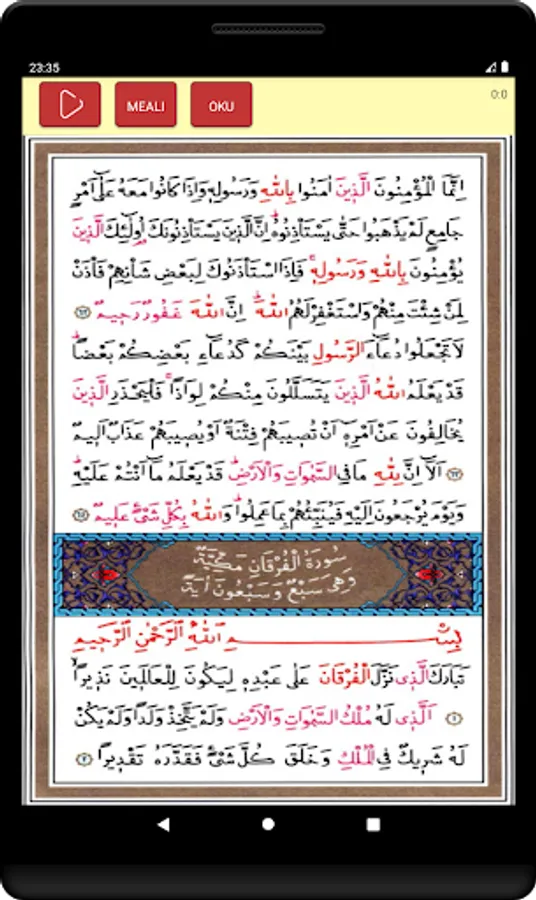 23:35
MEALI
OKU
0:0
اِنَّمَا الْمُؤْمِنُونَ الَّذِينَ اٰمَنُوا بِاللّٰهِ وَرَسُولِهٖ وَاِذَا كَانُوا مَعَهُ عَلٰٓى اَمْرٍ
جَامِعٍ لَمْ يَذْهَبُوا حَتّٰى يَسْتَأْذِنُوهُۜ اِنَّ الَّذِينَ يَسْتَأْذِنُونَكَ اُو۬لٰٓئِكَ الَّذِينَ
يُؤْمِنُونَ بِاللّٰهِ وَرَسُولِهٖۚ فَاِذَا اسْتَأْذَنُوكَ لِبَعْضِ شَأْنِهِمْ فَأْذَنْ
لِمَنْ شِئْتَ مِنْهُمْ وَاسْتَغْفِرْ لَهُمُ اللّٰهَۜ اِنَّ اللّٰهَ غَفُورٌ رَحِيمٌ ٦٢
لَا تَجْعَلُوا دُعَٓاءَ الرَّسُولِ بَيْنَكُمْ كَدُعَٓاءِ بَعْضِكُمْ بَعْضاًۜ
قَدْ يَعْلَمُ اللّٰهُ الَّذِينَ يَتَسَلَّلُونَ مِنْكُمْ لِوَاذاًۚ فَلْيَحْذَرِ الَّذِينَ
يُخَالِفُونَ عَنْ اَمْرِهٖٓ اَنْ تُصِيبَهُمْ فِتْنَةٌ اَوْ يُصِيبَهُمْ عَذَابٌ اَلِيمٌ
٦٣ اَلَٓا اِنَّ لِلّٰهِ مَا فِي السَّمٰوَاتِ وَالْاَرْضِۜ قَدْ يَعْلَمُ مَٓا اَنْتُمْ عَلَيْهِۜ
وَيَوْمَ يُرْجَعُونَ اِلَيْهِ فَيُنَبِّئُهُمْ بِمَا عَمِلُواۜ وَاللّٰهُ بِكُلِّ شَيْءٍ عَلِيمٌ ٦٤
سُورَةُ الْفُرْقَانِ مَكِّيَّةٌ
وَهِيَ سَبْعٌ وَسَبْعُونَ اٰيَةً
بِسْمِ اللّٰهِ الرَّحْمٰنِ الرَّحِيمِ
تَبَارَكَ الَّذِي نَزَّلَ الْفُرْقَانَ عَلٰى عَبْدِهٖ لِيَكُونَ لِلْعَالَمِينَ نَذِيراًۙ
١ اَلَّذِي لَهُ مُلْكُ السَّمٰوَاتِ وَالْاَرْضِ وَلَمْ يَتَّخِذْ وَلَداً وَلَمْ يَكُنْ
لَهُ شَرِيكٌ فِي الْمُلْكِ وَخَلَقَ كُلَّ شَيْءٍ فَقَدَّرَهُ تَقْدِيراً ٢